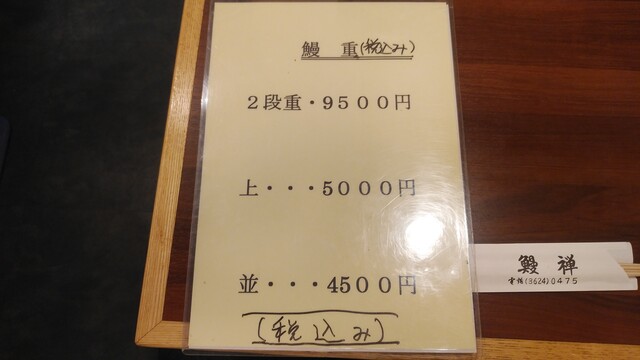 鰻　重(税込み)
２段重・９５００円
上・・・５０００円
並・・・４５００円
(税込み)
鰻禅
電話(3624)0475